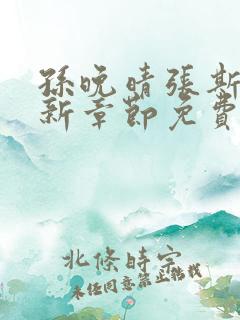 孫晚晴張斯
新章節免費
北條時宗
未經同意禁止轉載